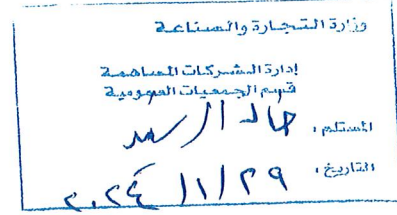 وزارة التجارة والصناعة
إدارة الشركات المساهمة
قسم الجمعيات العمومية
المستلم : خالد الرسعد
التاريخ : ٢٠٢٤/١/٢٩